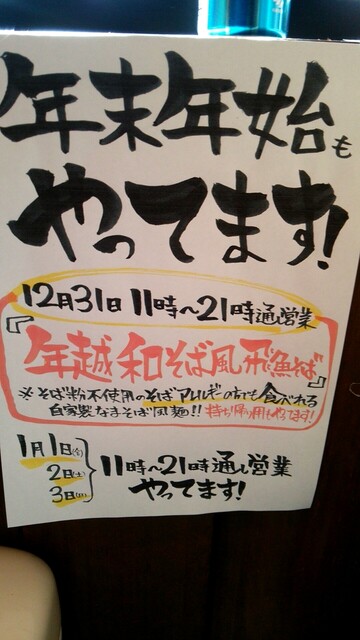 年末年始も
やってます!
12月31日 11時〜21時通営業
『年越和そば風飛魚そば』
※そば粉不使用のそばアレルギーの方でも食べれる
自家製なまそば風麺!! 持ち帰り用もやってます!
1月1日(金)
2日(土)
3日(日)
11時〜21時通し営業
やってます!